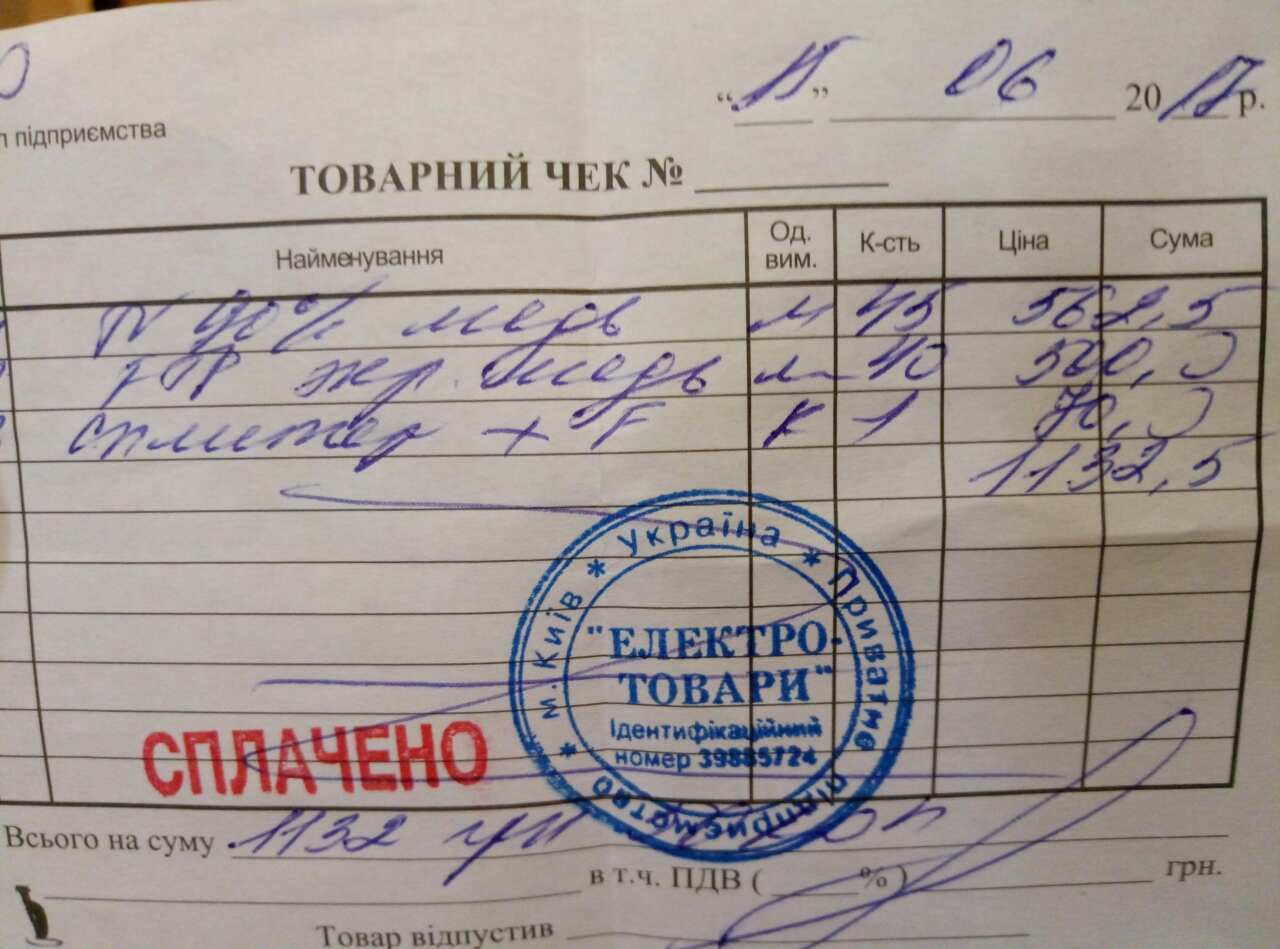 " " 06 2017 р.
п підприємства
ТОВАРНИЙ ЧЕК №
Найменування Од. вим. К-сть Ціна Сума
TV 90% медь м 45 562,5
медь м 40 500,0
сплитер + F к 1 70,0
1132,5
* Україна * Приватне підприємство * м. Київ
"ЕЛЕКТРО-
ТОВАРИ"
Ідентифікаційний
номер 39885724
СПЛАЧЕНО
Всього на суму 1132 грн 50 коп
в т.ч. ПДВ ( %) грн.
Товар відпустив